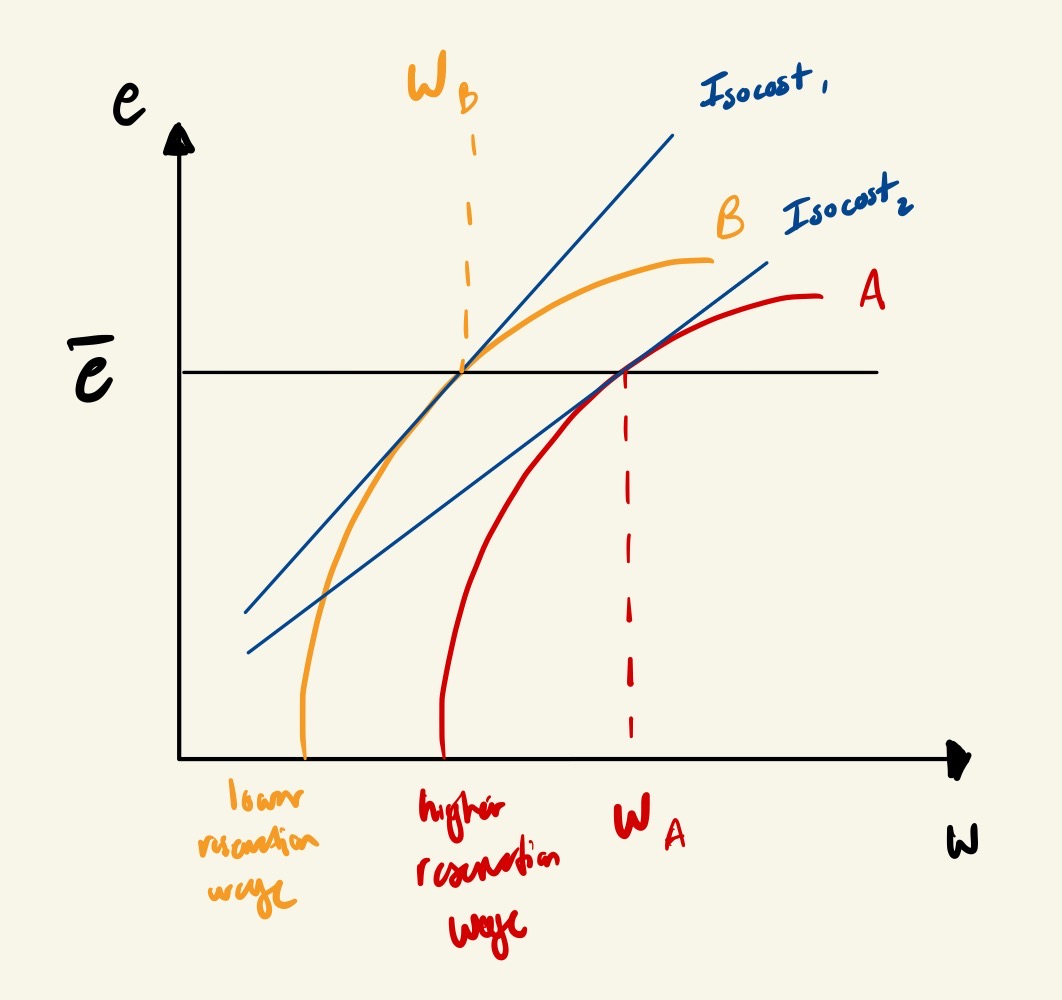 W_B
Isocost₁
e
Isocost₂
B
A
e̅
lower
reservation
wage
higher
reservation
wage
W_A
w